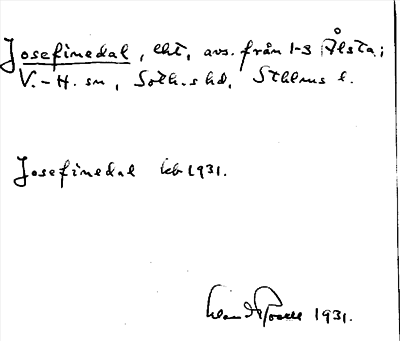 Josefinedal, lht, avs. från 1-3 Ålsta i
V.-H. sn, Soth.s hd, Sthlms l.
Josefinedal kb 1931.
1931.